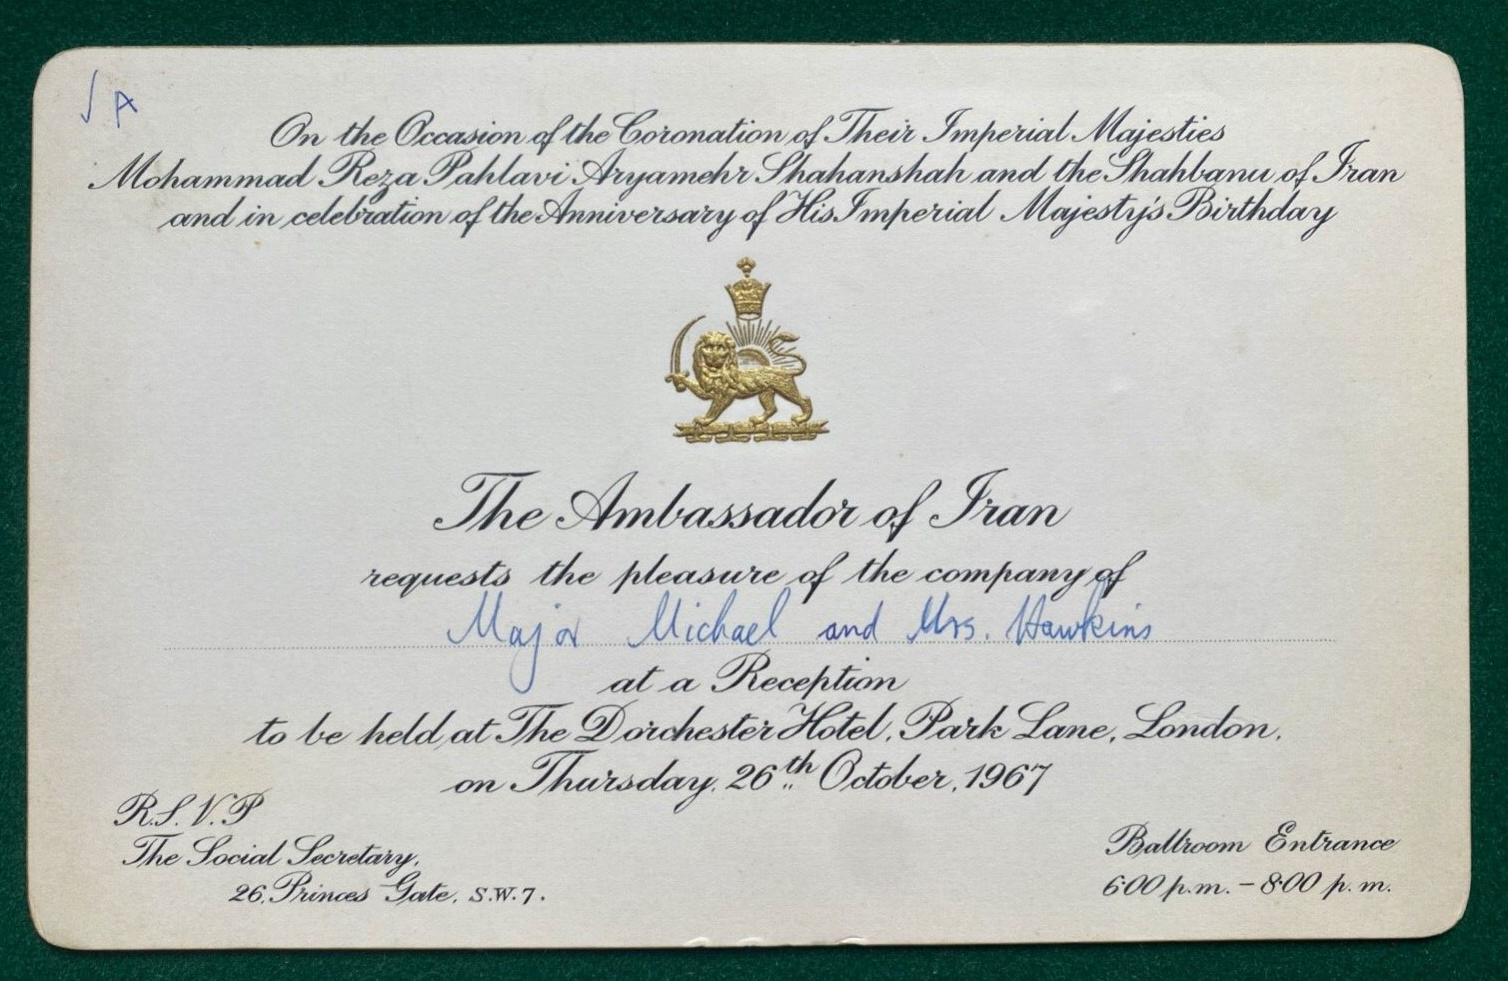 √ A
On the Occasion of the Coronation of Their Imperial Majesties
Mohammad Reza Pahlavi Aryamehr Shahanshah and the Shahbanu of Iran
and in celebration of the Anniversary of His Imperial Majesty's Birthday
The Ambassador of Iran
requests the pleasure of the company of
Major Michael and Mrs. Hawkins
at a Reception
to be held at The Dorchester Hotel, Park Lane, London,
on Thursday, 26th October, 1967
R.S.V.P
The Social Secretary,
26, Princes Gate, S.W.7.
Ballroom Entrance
6·00 p.m. – 8·00 p.m.